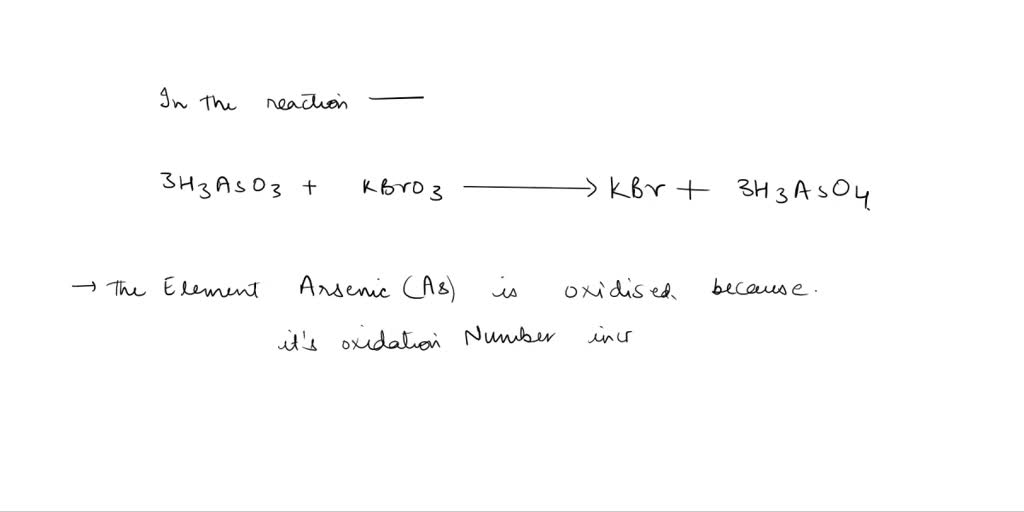 In the reaction —
3H3AsO3 + KBrO3 ⟶ KBr + 3H3AsO4.
→ The Element Arsenic (As) is oxidised because.
it's oxidation Number incr